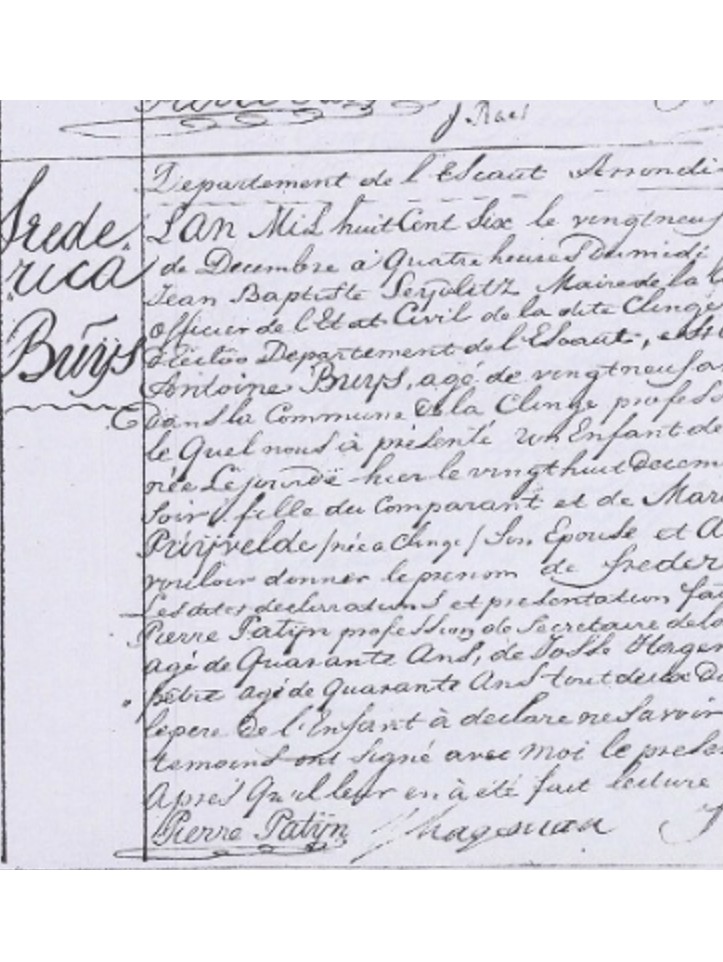 J Rael
Departement de l'Escaut Arrondi
Frede-
rica
Buijs
L'AN Mil huit Cent Six le vingtneuf
de Decembre à Quatre heures Dumidi
Jean Baptiste Maire de la
officier de l'Etat Civil de la dite Clinge
Departement de l'Escaut, est
Antoine Buijs, agé de vingtneuf an
Dans la Commune de la Clinge profess
le Quel nous à présenté un Enfant de
née Le jour d' hier le vingt huit Decem
Soir, fille du Comparant et de Mar
Puijvelde / née a Clinge / Son Epouse et A
vouloir donner le prenom de freder
Les dites declarations et presentation fai
Pierre Patijn profession de Secretaire de la
agé de Quarante Ans, de Josse Hagem
pêtre agé de Quarante Ans tout deux Do
le pere De l'Enfant à declaré ne Savoir
temoins ont Signé avec Moi le presen
Après Qu'il leur en à été fait lecture
Pierre Patijn J hageman